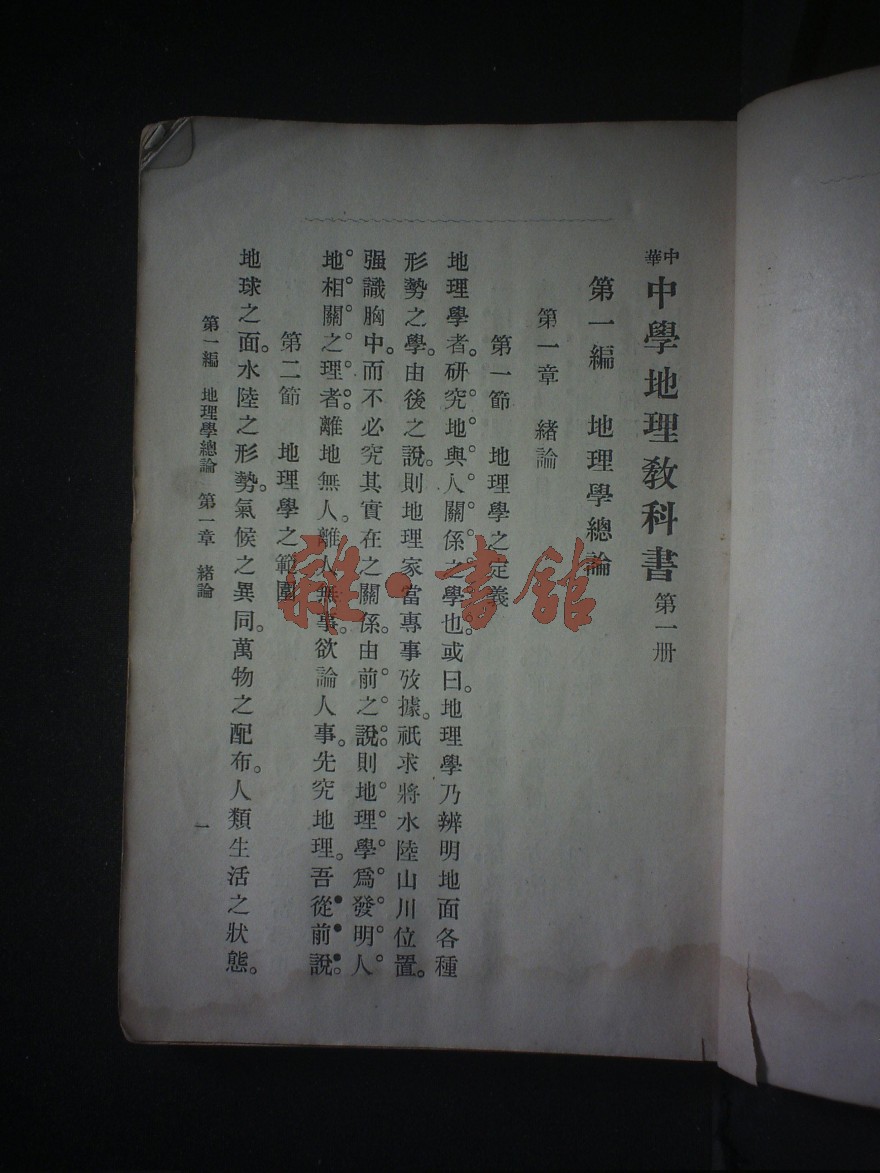 中華 中學地理教科書 第一册
第一編 地理學總論
第一章 緒論
第一節 地理學之定義
地理學者。研究地與人關係之學也。或曰。地理學乃辨明地面各種
形勢之學。由後之說。則地理家當專事攷據。祇求將水陸山川位置。
强識胸中。而不必究其實在之關係。由前之說。則地理學爲發明人
地相關之理者。離地無人。離人無事。欲論人事。先究地理。吾從前說。
第二節 地理學之範圍
地球之面。水陸之形勢。氣候之異同。萬物之配布。人類生活之狀態。
第一編 地理學總論 第一章 緒論
一
雜·書館